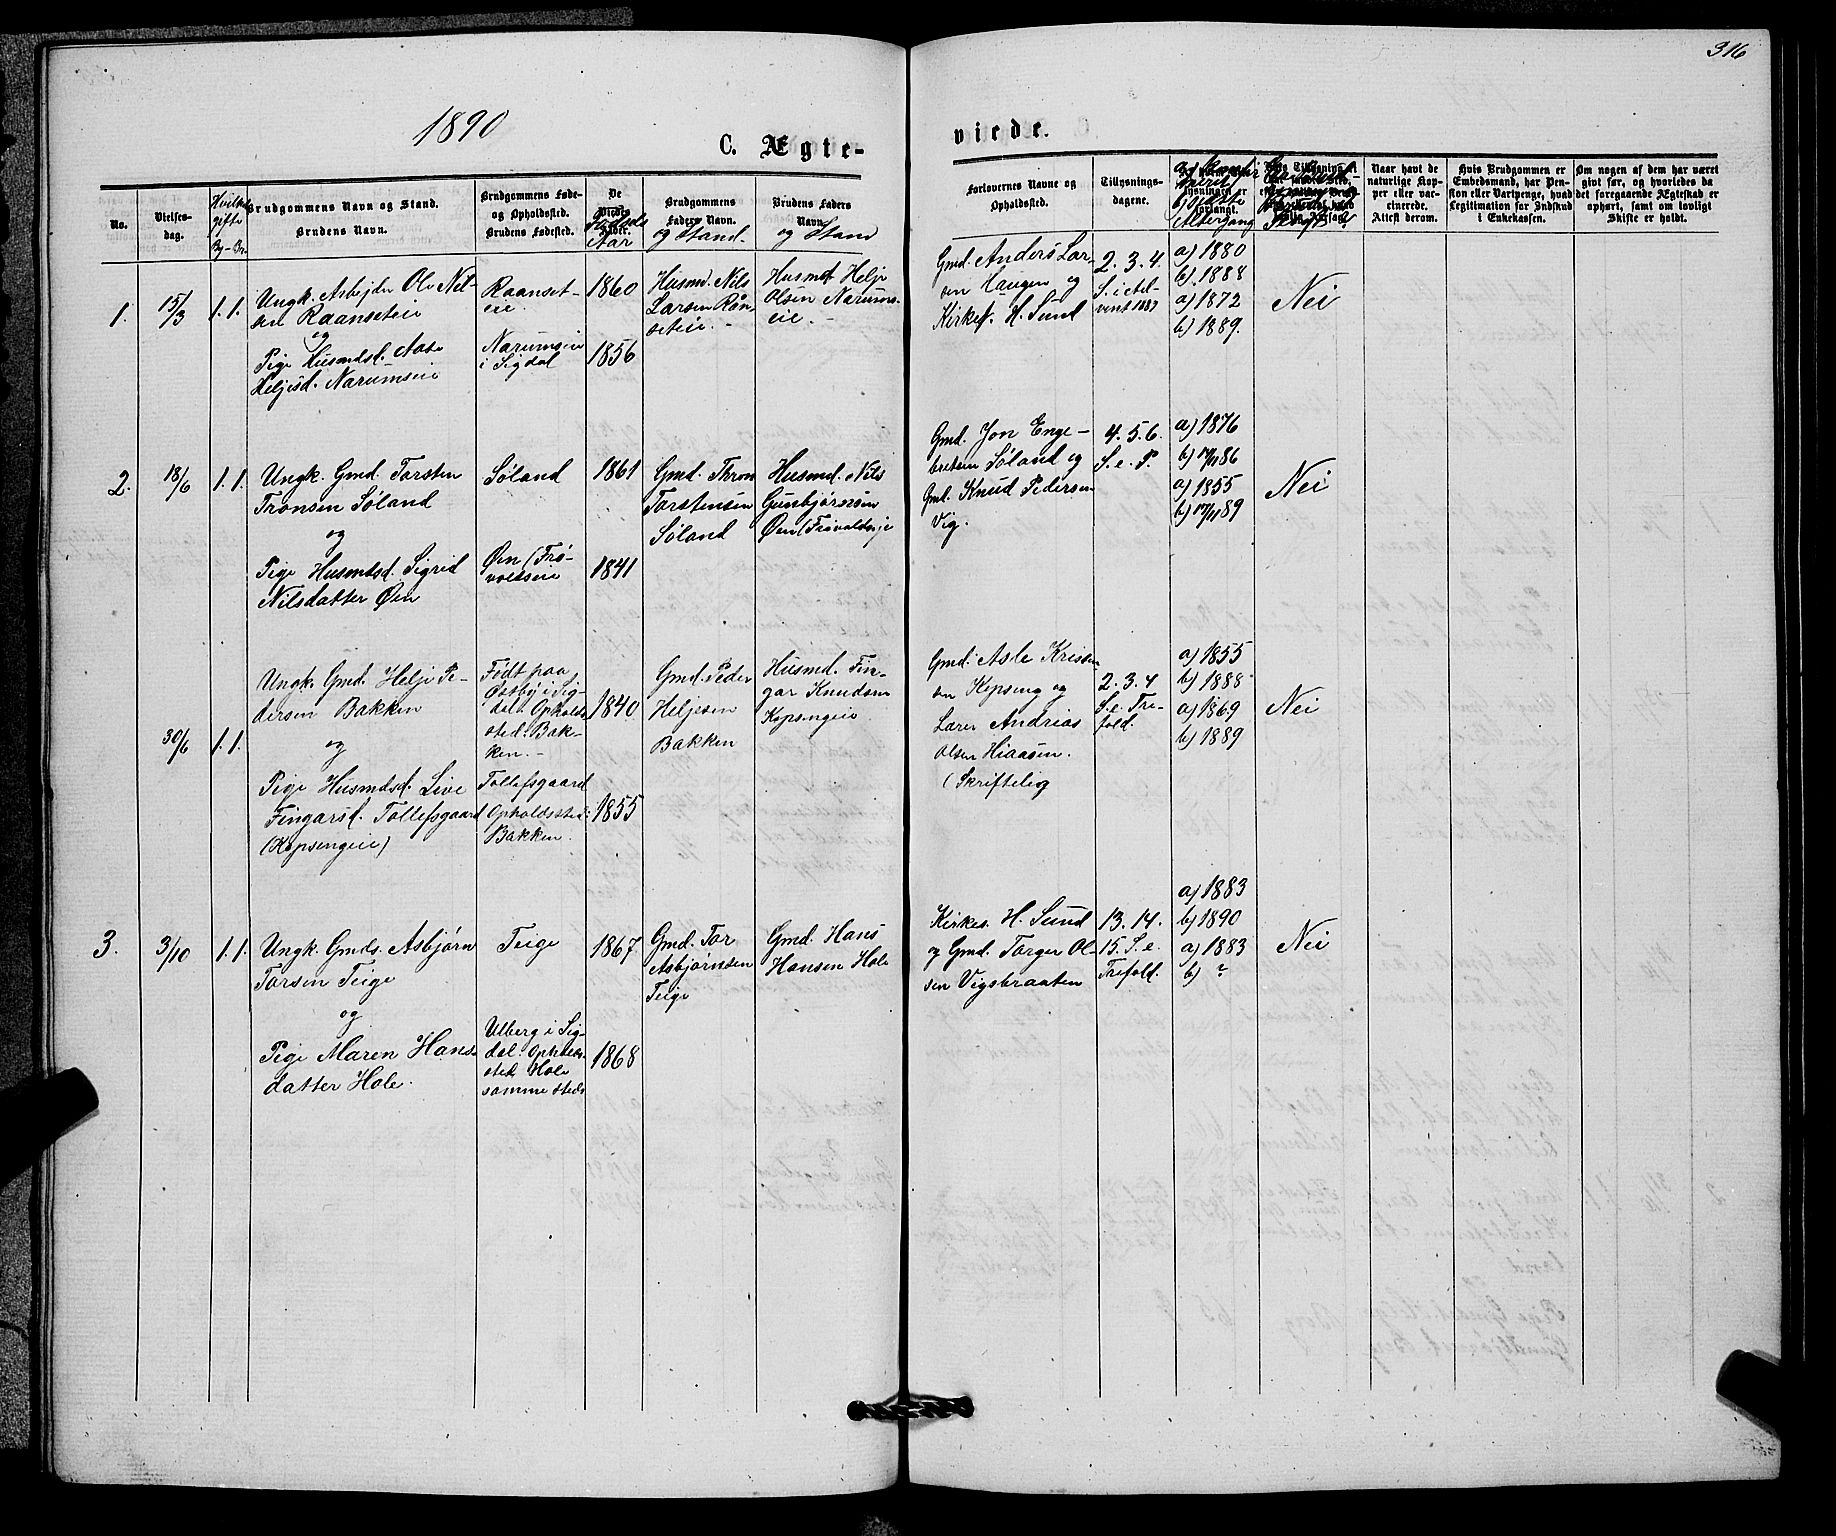 316
1890
C. Ægte-
viede.
No.
Vielses-
dag.
gifte
Bg- Br.
Brudgommens Navn og Stand.
Brudens Navn.
Brudgommens Føde-
og Opholdssted.
Brudens Fødested.
De
Viedes
Fødsels
Aar
Brudgommens
Faders Navn.
og Stand.
Brudens Faders
Navn.
og Stand
Forlovernes Navne og
Opholdssted.
Tillysnings-
dagene.
Naar havt de
naturlige Kop-
per eller vac-
cinerede.
Attest derom.
Hvis Brudgommen er
Embedsmand, har Pen-
sion eller Vartpenge, hvad
Legitimation for Indskud
i Enkekassen.
Om nogen af dem har været
gift før, og hvorledes da
det foregaaende Ægteskab er
ophørt, samt om lovligt
Skifte er holdt.
1.
15/3
1. 1.
Ungk. Asbjør Ol. Nil-
sen Raanseteie
og
Pige Husmdsd. Aase
Heljesd. Narumseie
Raanset-
eie.
Narumseie
i Sigdal
1860
1856
Husmd. Nils
Larsen Rån-
seteie. -
Husmd Helje
Olsen Narums-
eie. -
Gmd. Anders Lar-
sen Haugen og
Kirkes. H. Sund
2. 3. 4.
S. i Ad-
vent 1889
a) 1880
b) 1888
a) 1872
b) 1889.
Nei
2.
18/6
1. 1.
Ungk. Gmd. Torsten
Tronsen Søland
og
Pige Husmdsd. Sigrid
Nilsdatter Øen
Søland
Øen (Frø-
voldseie
1861
1841
Gmd. Thron
Torstensen
Søland
Husmd. Nils
Gunbjørnsen
Øen (Frøvoldseje
Gmd. Jon Enge-
bretsen Søland og
Gmd. Knud Pedersen
Vig.
4. 5. 6.
S. e. P.
a) 1876
b) 17/11 86
a) 1855
b) 17/11 89
Nei
30/6
1. 1.
Ungk. Gmd. Helje Pe-
dersen Bakken
og
Pige Husmdsd. Live
Fingarsd. Tollefsgaard
(Kopsengeie)
Født paa
Østby i Sig-
dal. Opholds-
sted. Bak-
ken. -
Tollefsgaard
Opholdssted:
Bakken.
1840
1855
Gmd. Peder
Heljesen
Bakken
Husmd. Fin-
gar Knudsen
Kopsengeie
Gmd. Asle Kristen-
sen Kopseng og
Lærer Andreas
Olsen Hiaasen.
(Skriftelig
2. 3. 4
S. e. Tre-
fold.
a) 1855
b) 1888
a) 1869
b) 1889
Nei
3.
3/10
1. 1.
Ungk. Gmds. Asbjørn
Torsen Teige
og
Pige Maren Hans-
datter Hole.
Teige
Ulberg i Sig-
dal. Opholds-
sted Hole
sammesteds
1867
1868
Gmd. Tor
Asbjørnsen
Teige
Gmd. Hans
Hansen Hole
Kirkes. H. Sund
og Gmd. Torger Ol-
sen Vigsbraaten
13. 14.
15. S. e.
Trefold.
a) 1883
b) 1890
a) 1883
b) ?
Nei